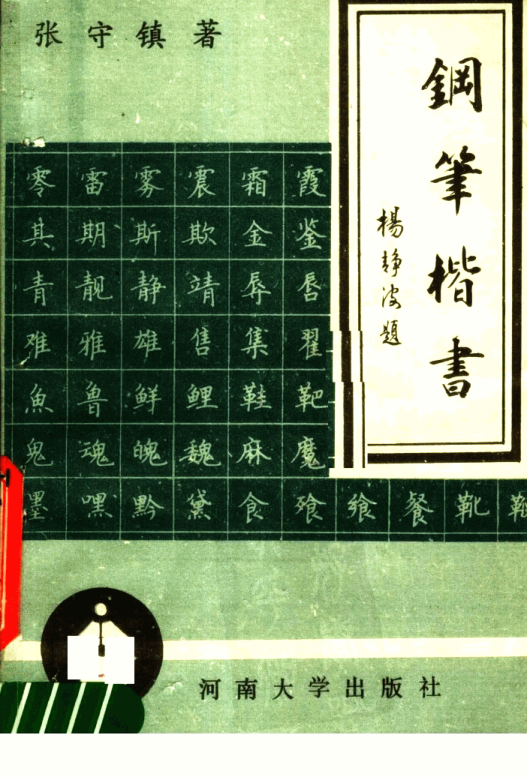 张守镇著
鋼筆楷書
楊静波題
零雷雾震霜霞
其期斯欺金鉴
青靓静靖辱唇
难雅雄售集翟
魚鲁鲜鲤鞋靶
鬼魂魄魏麻魔
墨嘿黔黛食飧飨餐靴
河南大学出版社